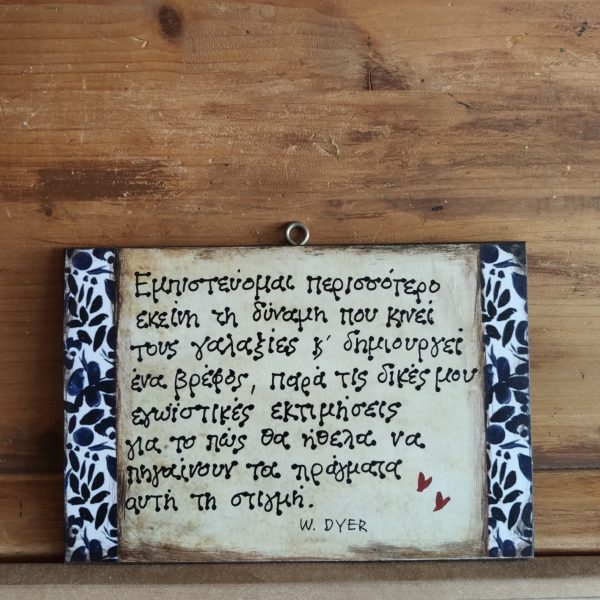 Εμπιστεύομαι περισσότερο
εκείνη τη δύναμη που κινεί
τους γαλαξίες κ' δημιουργεί
ένα βρέφος, παρά τις δικές μου
εγωϊστικές εκτιμήσεις
για το πώς θα ήθελα να
πηγαίνουν τα πράγματα
αυτή τη στιγμή.
W. DYER